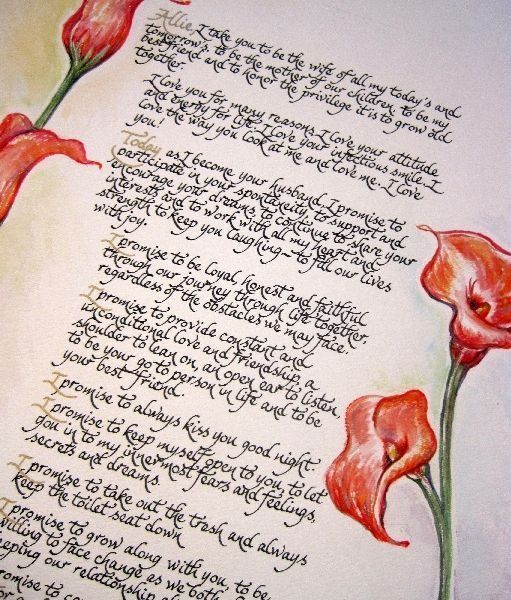 Allie, I take you to be the wife of all my today's and
tomorrow's, to be the mother of our children, to be my
best friend and to honor the privilege it is to grow old
together.
I love you for many reasons. I love your attitude
and energy for life. I love your infectious smile. I
love the way you look at me and love me. I love
you!
Today as I become your husband, I promise to
participate in your spontaneity, to support and
encourage your dreams, to continue to share your
interests and to work with all my heart and
strength to keep you laughing - to fill our lives
with joy.
I promise to be loyal, honest and faithful
through our journey through life together,
regardless of the obstacles we may face.
I promise to provide constant and
unconditional love and friendship, a
shoulder to lean on, an open ear to listen,
to be your go to person in life and to be
your best friend.
I promise to always kiss you good night.
I promise to keep myself open to you, to let
you in to my innermost fears and feelings,
secrets and dreams.
I promise to take out the trash and always
keep the toilet seat down
I promise to grow along with you, to be
willing to face change as we both
keeping our relationship
promise to